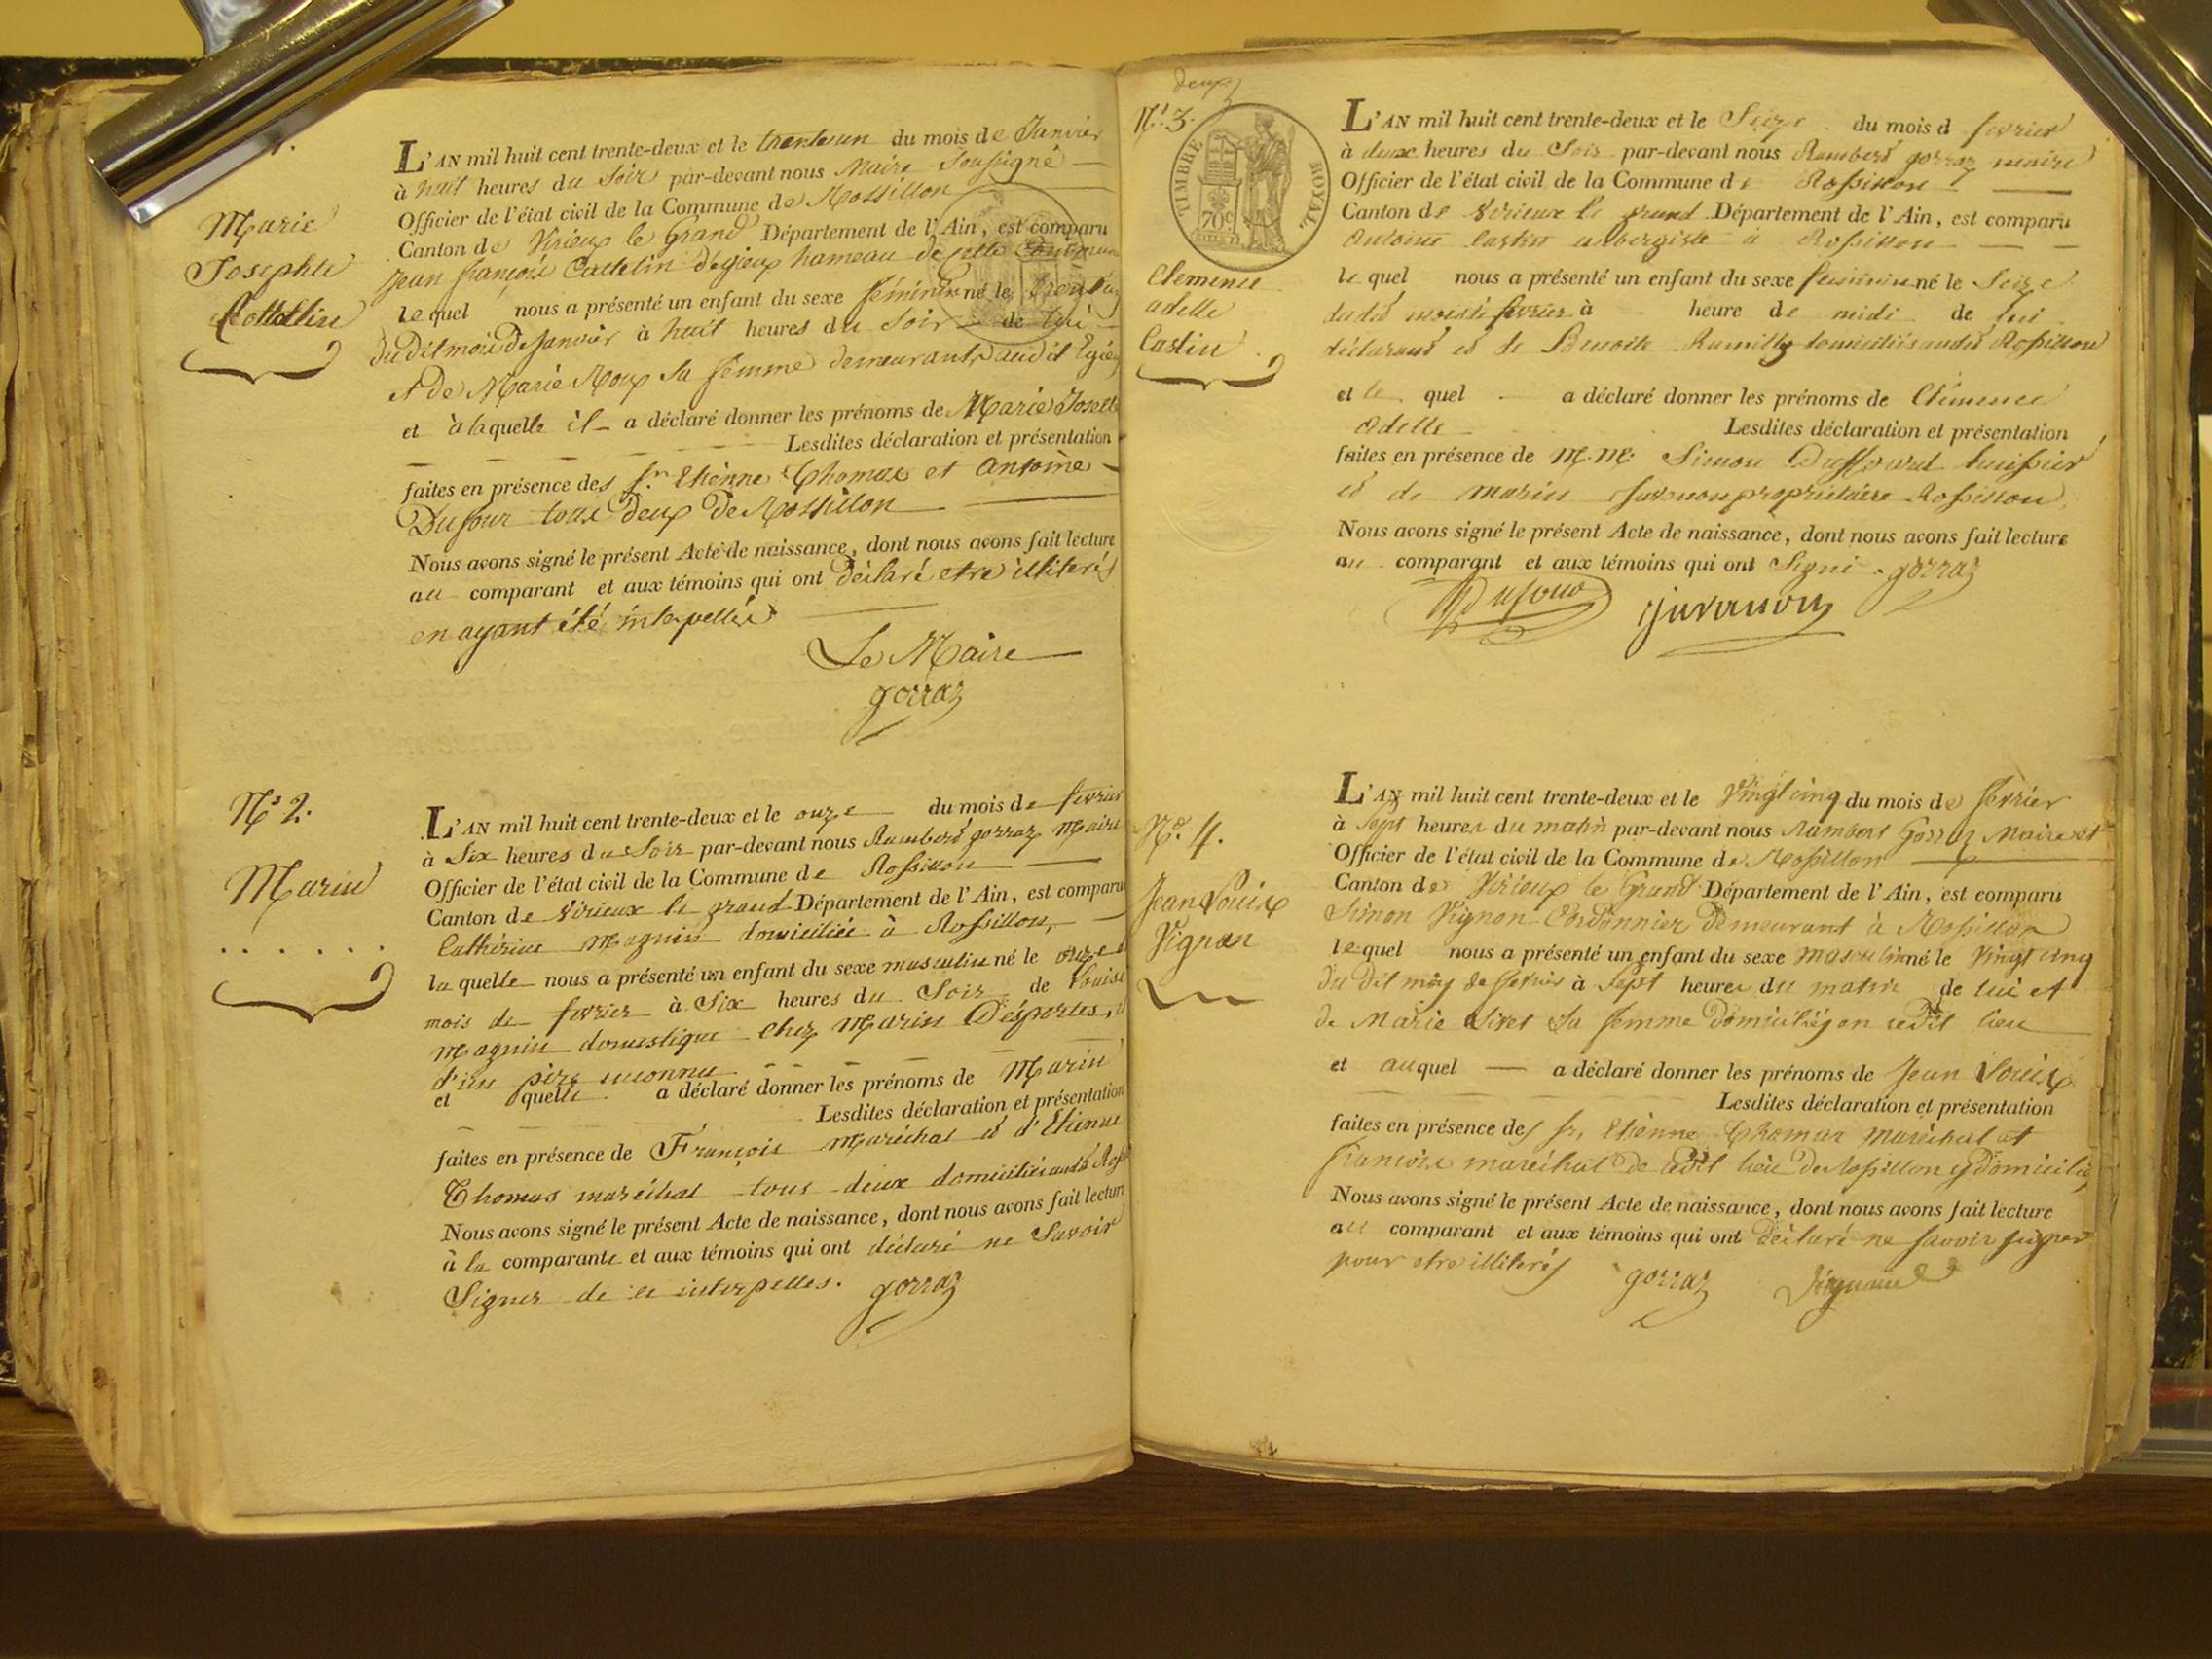 Marie
Josephte
L'AN mil huit cent trente-deux et le trente un du mois de Janvier
à huit heures du Soir par-devant nous Maire Soussigné
Officier de l'état civil de la Commune de Rossillon
Canton de Virieux le Grand Département de l'Ain, est comparu
jean françois d'égieux hameau de cette Commune
lequel nous a présenté un enfant du sexe féminin né le trente un
du dit mois de Janvier à huit heures du Soir de lui
et de Marie Roux sa femme demeurants au dit
et à laquelle il a déclaré donner les prénoms de Marie
Lesdites déclaration et présentation
faites en présence des sr. Etienne Thomas et Antoine
Dufour tous deux de Rossillon
Nous avons signé le présent Acte de naissance, dont nous avons fait lecture
au comparant et aux témoins qui ont déclaré etre illiterés
en ayant été interpellés
Le Maire
gorraz
No 2.
Marin
L'AN mil huit cent trente-deux et le onze du mois de fevrier
à Six heures du Soir par-devant nous Rambert gorraz Maire
Officier de l'état civil de la Commune de Rossillon
Canton de Virieux le grand Département de l'Ain, est comparu
Cathérine Magnin domiciliée à Rossillon,
la quelle nous a présenté un enfant du sexe masculin né le onze
mois de fevrier à Six heures du Soir de Louise
Magnin domestique chez Marin Désportes,
d'un père inconnu
et quelle a déclaré donner les prénoms de Marin
Lesdites déclaration et présentation
faites en présence de François maréchal et d'Etienne
Thomas maréchal tous deux domiciliés audit
Nous avons signé le présent Acte de naissance, dont nous avons fait lecture
à la comparante et aux témoins qui ont déclaré ne Savoir
Signer de ce interpelles. gorraz
deux
No 3.
TIMBRE ROYAL
70c
Clemence
adelle
Castin
L'AN mil huit cent trente-deux et le Seize du mois d fevrier
à deux heures du Soir par-devant nous Rambert gorraz maire
Officier de l'état civil de la Commune de Rossillon
Canton de Virieux le grand Département de l'Ain, est comparu
Antoine Castin aubergiste à Rossillon
le quel nous a présenté un enfant du sexe feminin né le Seize
dudit mois de fevrier à heure de midi de lui
déclarant et de Benoite Rumilly domiciliés audit Rossillon
et le quel a déclaré donner les prénoms de Clémence
Adelle Lesdites déclaration et présentation
faites en présence de M.M. Simon huissier
et de marin juvanon propriétaire Rossillon
Nous avons signé le présent Acte de naissance, dont nous avons fait lecture
au comparant et aux témoins qui ont Signé. gorraz
Dufour juvanon
No. 4.
Jean Louis
Vignon
L'AN mil huit cent trente-deux et le Vingt cinq du mois de fevrier
à Sept heures du matin par-devant nous Rambert Gorraz Maire et
Officier de l'état civil de la Commune de Rossillon
Canton de Virieux le Grand Département de l'Ain, est comparu
Simon Vignon Cordonnier demeurant à Rossillon
lequel nous a présenté un enfant du sexe masculin né le Vingt cinq
du dit mois de fevrier à Sept heures du matin de lui et
de Marie sa femme domiciliés en cedit lieu
et auquel a déclaré donner les prénoms de Jean Louis
Lesdites déclaration et présentation
faites en présence des sr. Etienne Thomas maréchal et
françois maréchal de adit lieu de Rossillon y domiciliés
Nous avons signé le présent Acte de naissance, dont nous avons fait lecture
au comparant et aux témoins qui ont déclaré ne savoir signer
pour etre illiterés gorraz